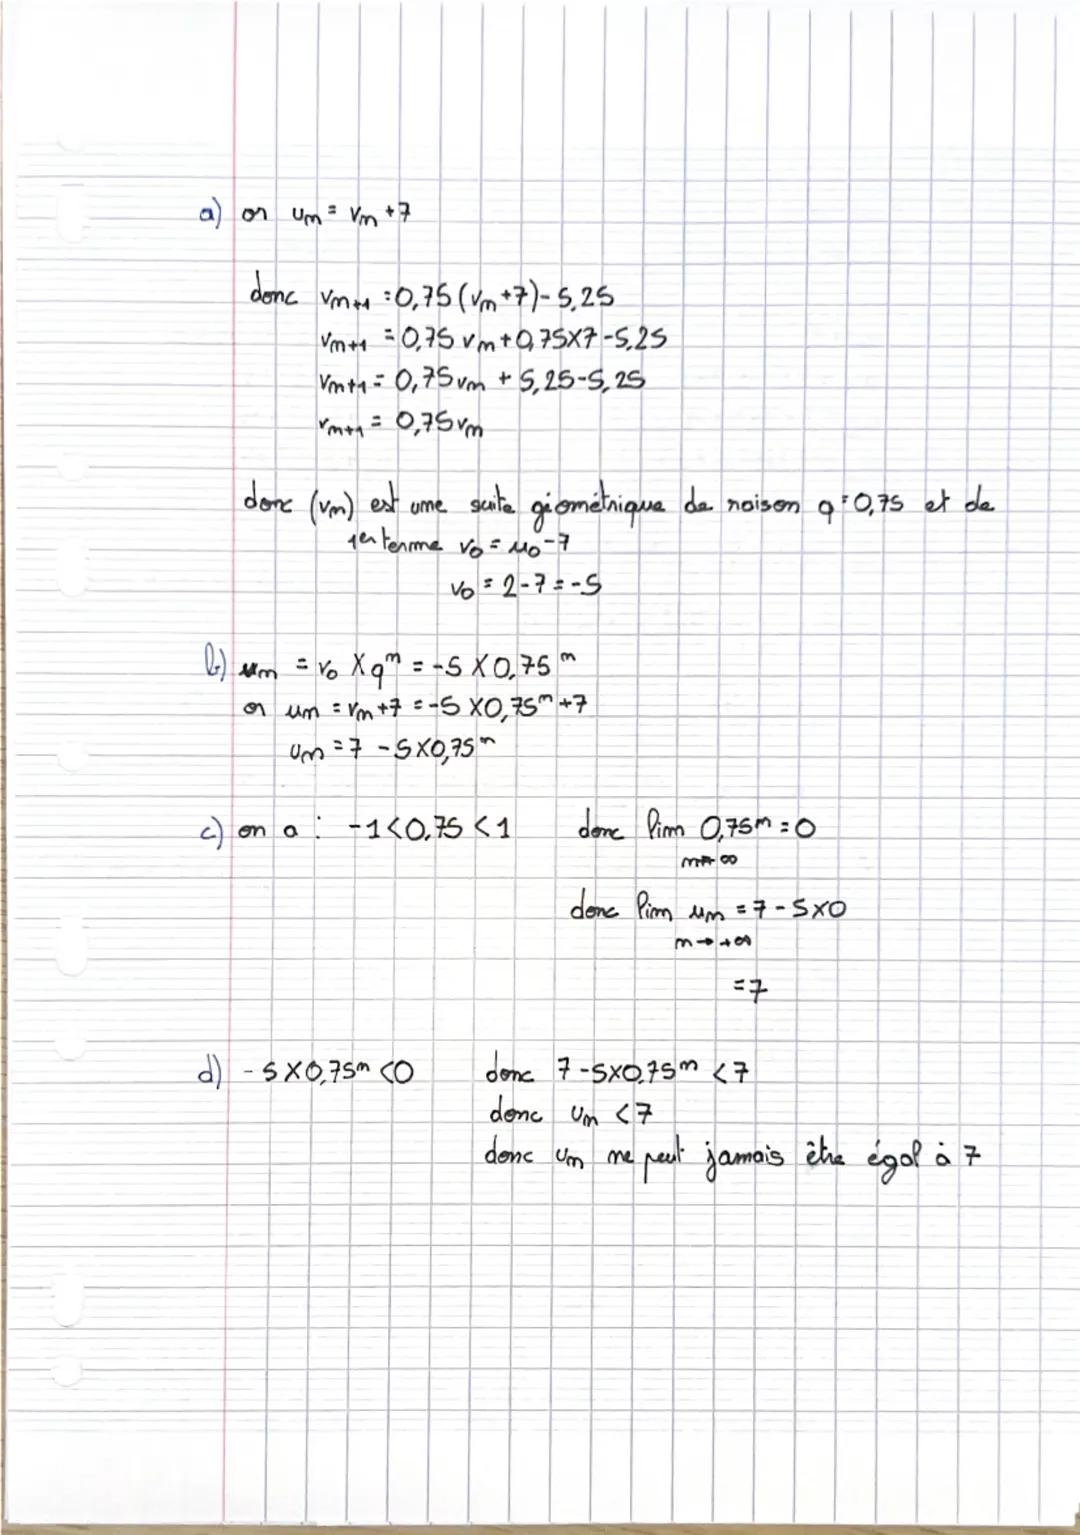 a) or un = vn +7
donc vn+1 = 0,75 (vn+7) - 5,25
vn+1 = 0,75 vn + 0,75X7 - 5,25
vn+1 = 0,75 vn + 5,25 - 5,25
vn+1 = 0,75 vn
donc (vn) est une suite géométrique de raison q = 0,75 et de
1er terme v0 = u0 - 7
v0 = 2 - 7 = -5
b) un = v0 X q^n = -5 X 0,75^n
or un = vn + 7 = -5 X 0,75^n + 7
un = 7 - 5 X 0,75^n
c) on a : -1 < 0,75 < 1 donc lim 0,75^n = 0
n→ ∞
donc lim un = 7 - 5X0
n → +∞
= 7
d) -5 X 0,75^n < 0 donc 7 - 5X0,75^n < 7
donc un < 7
donc un ne peut jamais être égal à 7